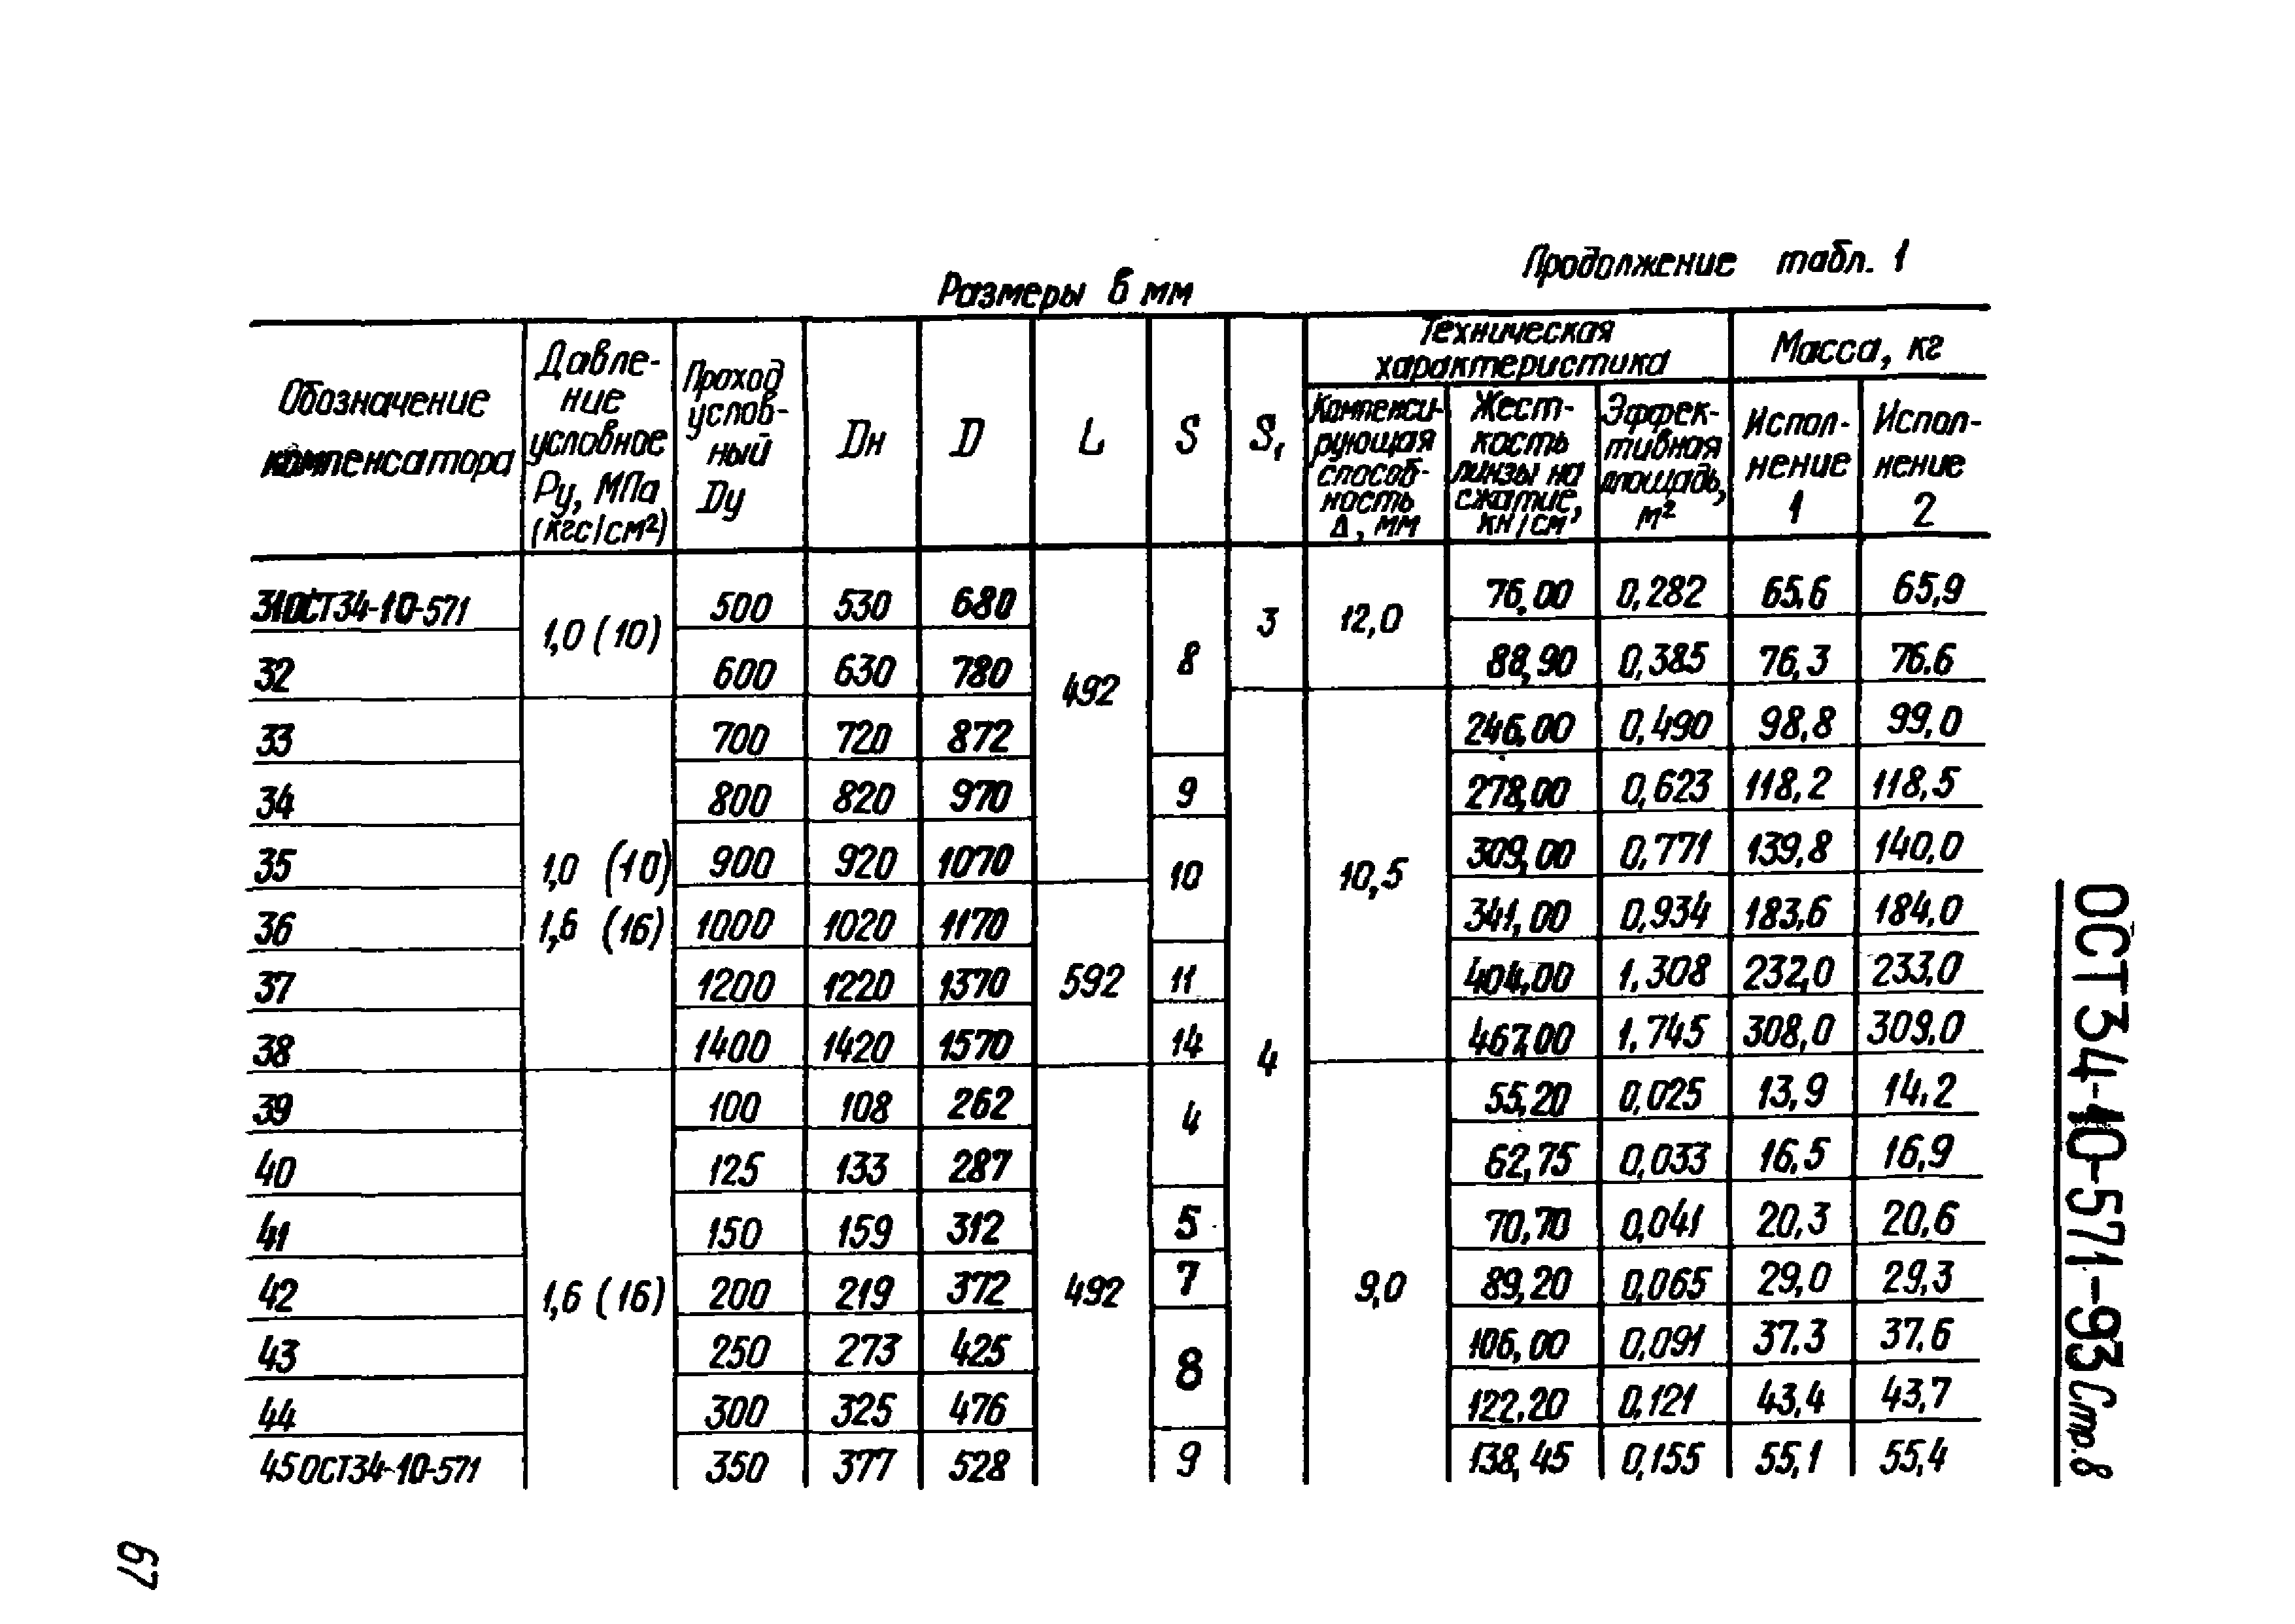 Продолжение табл. 1
Размеры в мм
Обозначение компенсатора | Давление условное Ру, МПа (кгс/см²) | Проход условный Dу | Dн | D | L | S | S₁ | Техническая характеристика | Масса, кг
Компенсирующая способность Δ, мм | Жесткость линзы на сжатие, кн/см | Эффективная площадь, м² | Исполнение 1 | Исполнение 2
31 ОСТ 34-10-571 | 1,0 (10) | 500 | 530 | 680 | 492 | 8 | 3 | 12,0 | 76,00 | 0,282 | 65,6 | 65,9
32 | 600 | 630 | 780 | 88,90 | 0,385 | 76,3 | 76,6
33 | 1,0 (10) 1,6 (16) | 700 | 720 | 872 | 4 | 10,5 | 246,00 | 0,490 | 98,8 | 99,0
34 | 800 | 820 | 970 | 9 | 278,00 | 0,623 | 118,2 | 118,5
35 | 900 | 920 | 1070 | 10 | 309,00 | 0,771 | 139,8 | 140,0
36 | 1000 | 1020 | 1170 | 592 | 341,00 | 0,934 | 183,6 | 184,0
37 | 1200 | 1220 | 1370 | 11 | 404,00 | 1,308 | 232,0 | 233,0
38 | 1400 | 1420 | 1570 | 14 | 467,00 | 1,745 | 308,0 | 309,0
39 | 1,6 (16) | 100 | 108 | 262 | 492 | 4 | 9,0 | 55,20 | 0,025 | 13,9 | 14,2
40 | 125 | 133 | 287 | 62,75 | 0,033 | 16,5 | 16,9
41 | 150 | 159 | 312 | 5 | 70,70 | 0,041 | 20,3 | 20,6
42 | 200 | 219 | 372 | 7 | 89,20 | 0,065 | 29,0 | 29,3
43 | 250 | 273 | 425 | 8 | 106,00 | 0,091 | 37,3 | 37,6
44 | 300 | 325 | 476 | 122,20 | 0,121 | 43,4 | 43,7
45 ОСТ 34-10-571 | 350 | 377 | 528 | 9 | 138,45 | 0,155 | 55,1 | 55,4
ОСТ 34-10-571-93 Стр. 8
67